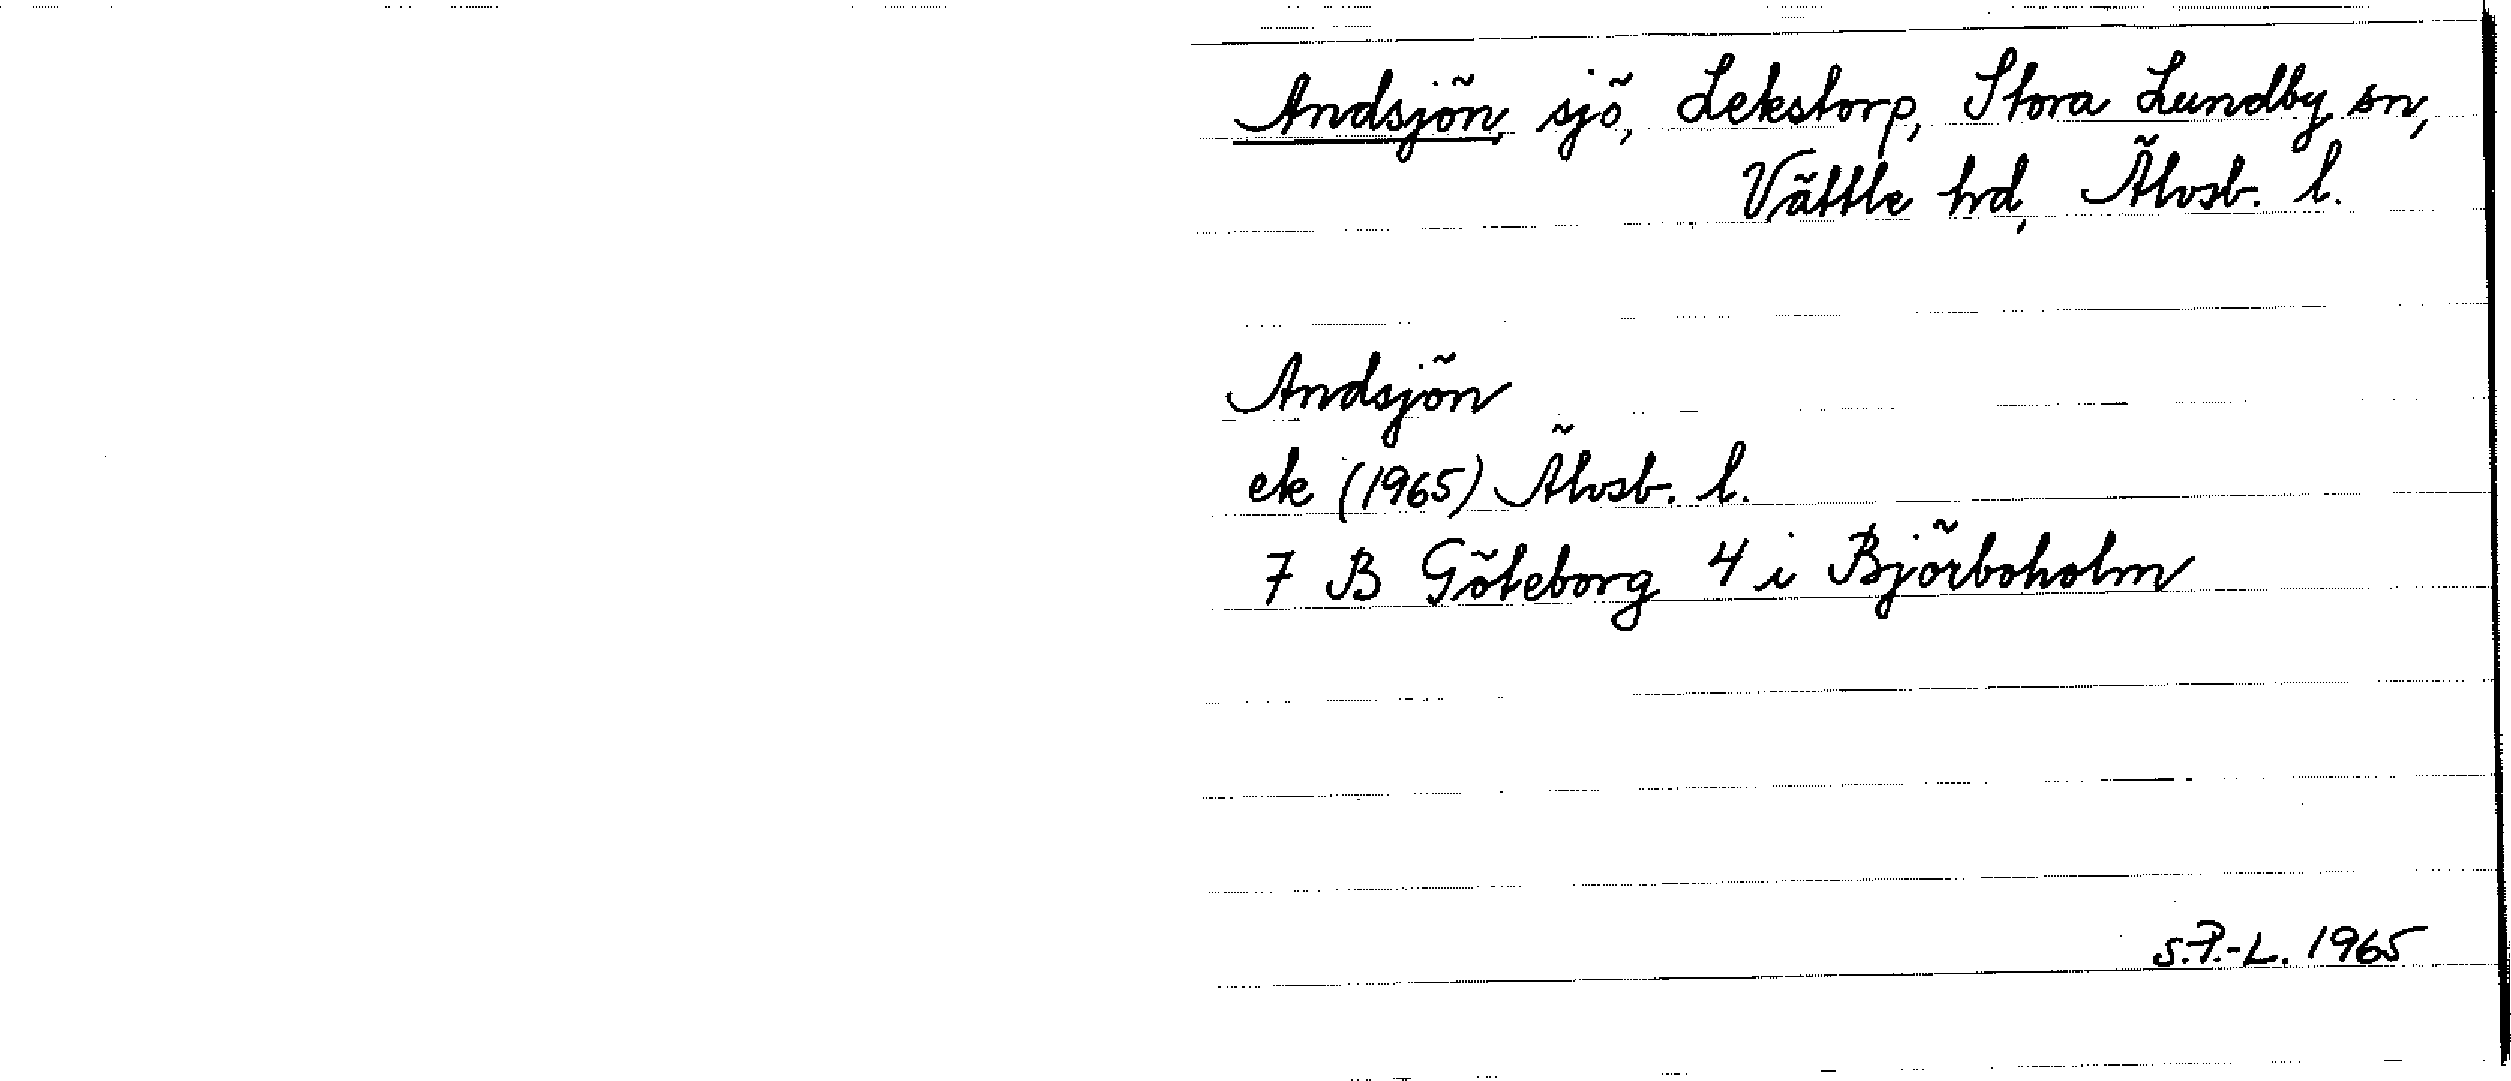 Andsjön, sjö, Lekstorp, Stora Lundby sn,
Vättle hd, Älvsb. l.
Andsjön
ek (1965) Älvsb. l.
7 B Göteborg 4 i Björboholm
S.P.-L. 1965